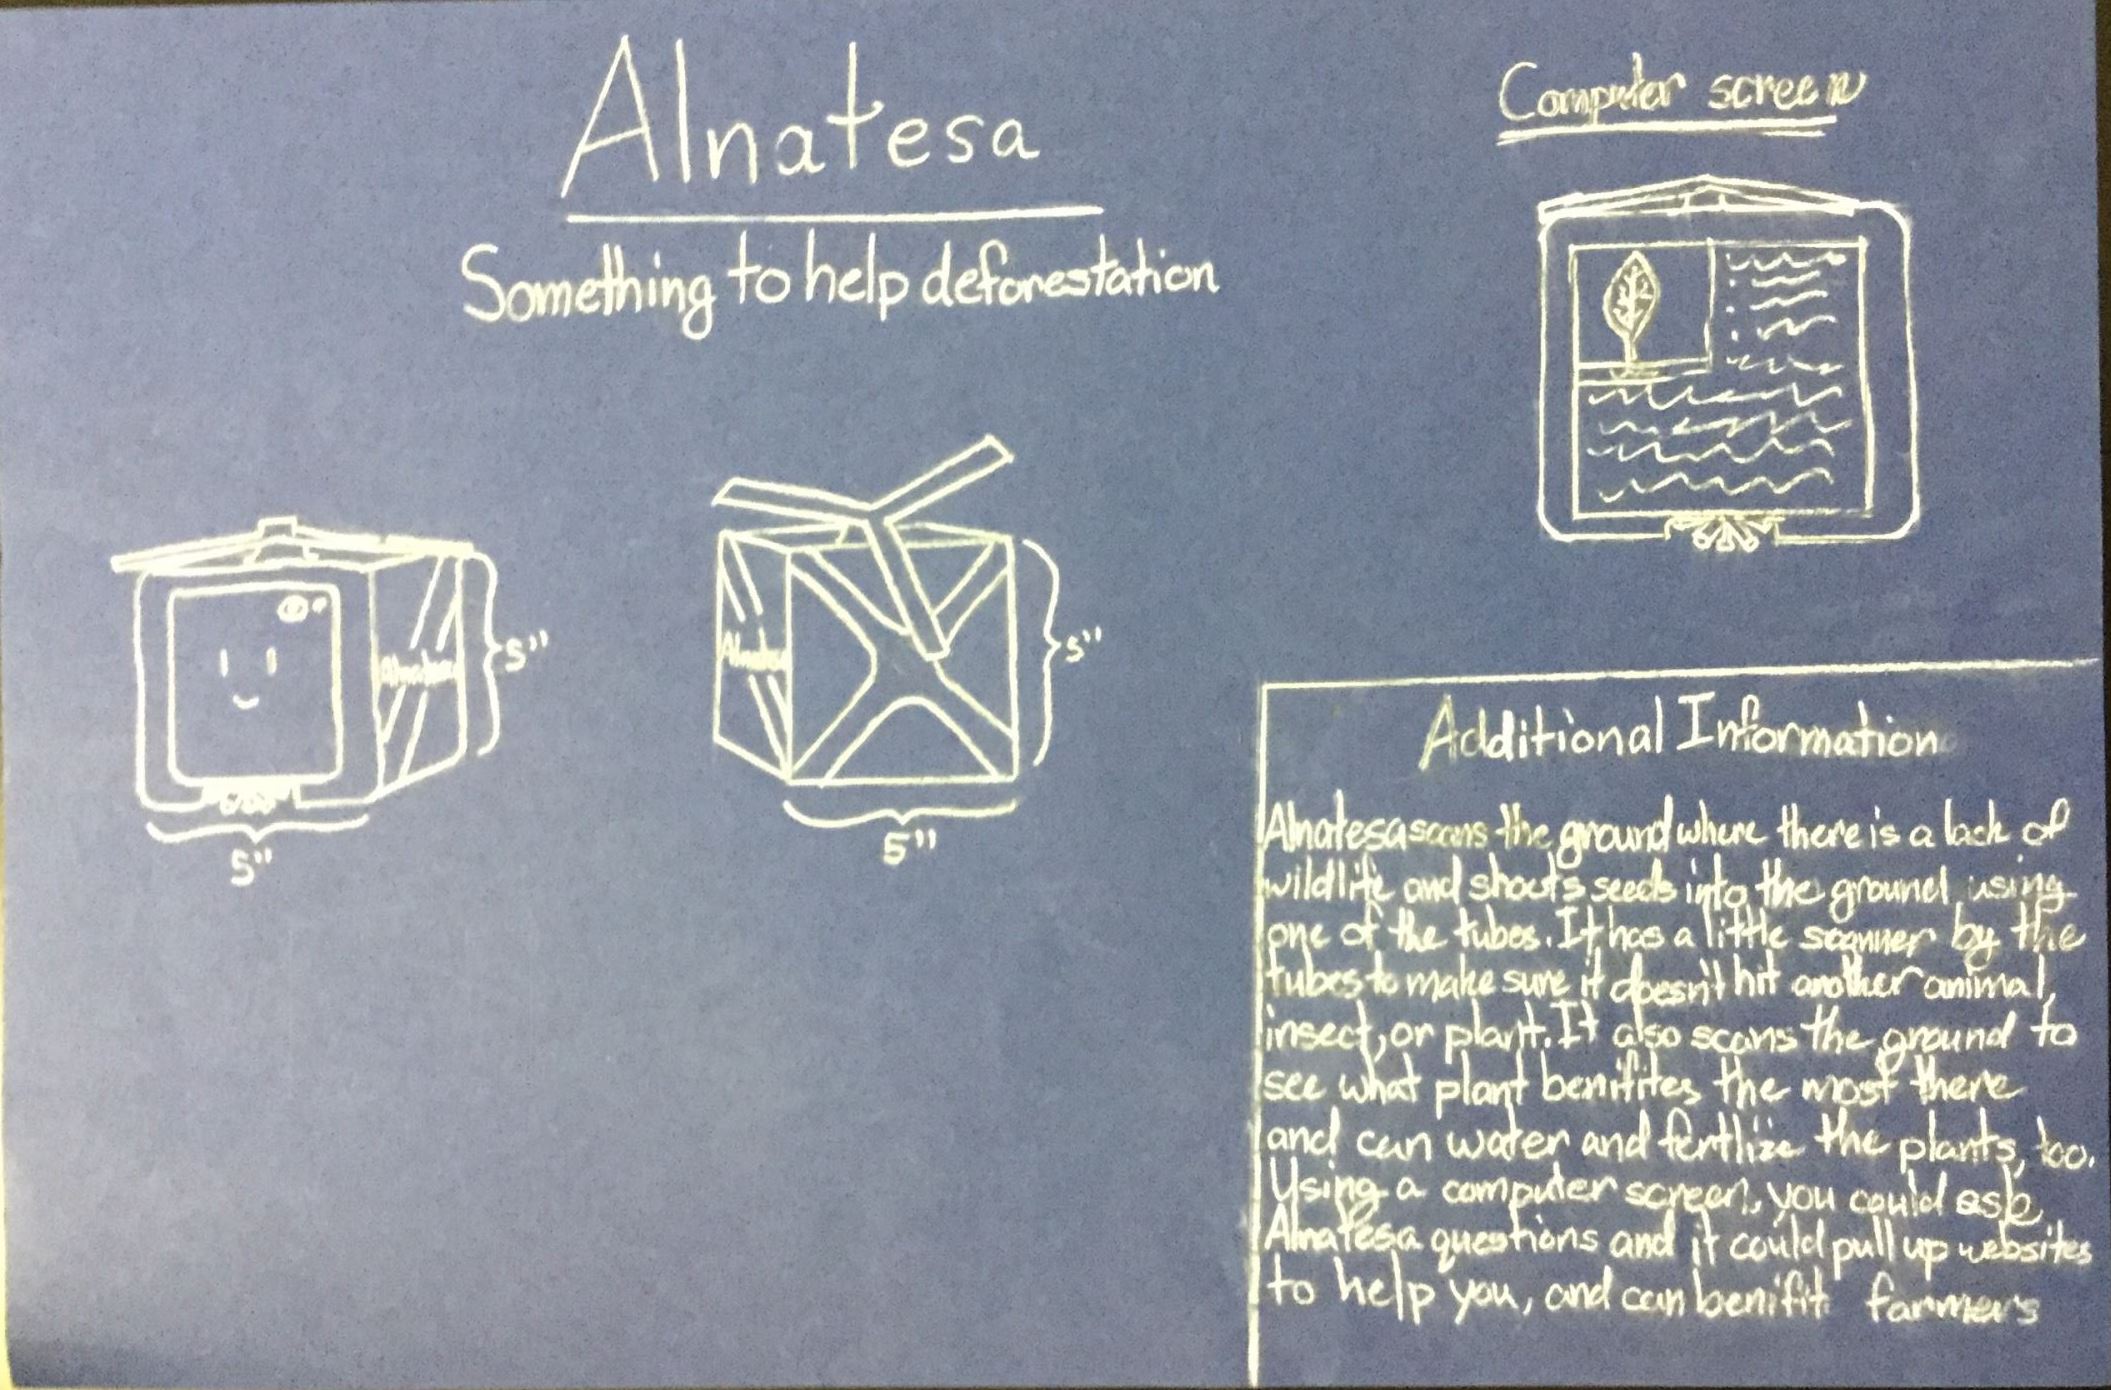 Alnatesa
Something to help deforestation
Computer screen
Alnatesa
5"
5"
Alnatesa
5"
5"
Additional Information
Alnatesa scans the ground where there is a lack of
wildlife and shoots seeds into the ground using
one of the tubes. It has a little scanner by the
tubes to make sure it doesn't hit another animal,
insect, or plant. It also scans the ground to
see what plant benifites the most there
and can water and fertlize the plants, too.
Using a computer screen, you could ask
Alnatesa questions and it could pull up websites
to help you, and can benifit farmers